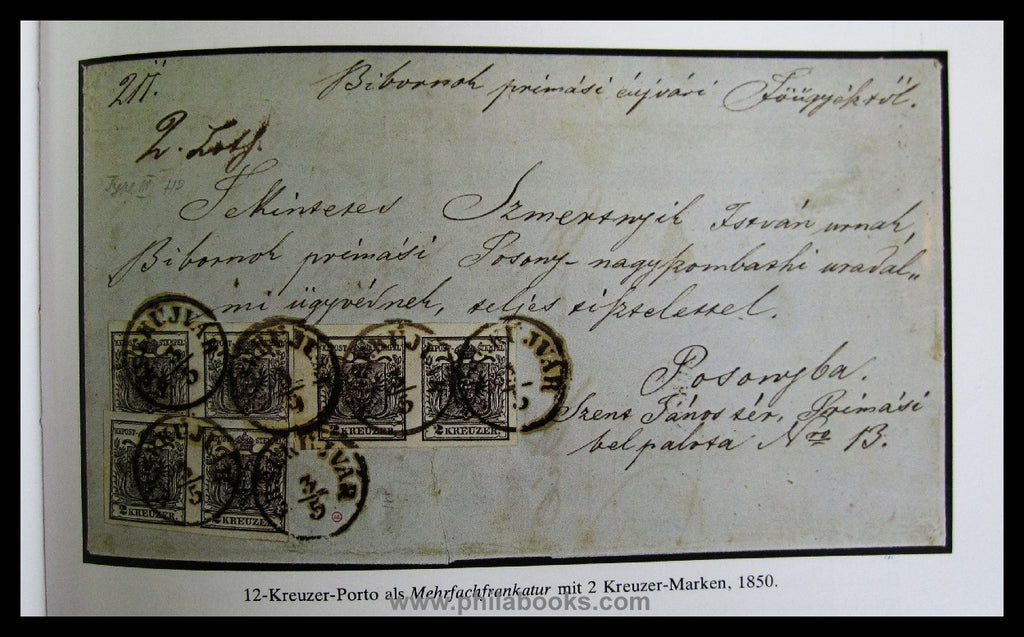 Bibornok prímási érsujvári Főügyésztől.
2. Loth.
Tekintetes Szmertnyik István urnak,
Bibornok prímási Posony-nagyszombathi uradal„
mi ügyvédnek, teljes tisztelettel.
Posonyba.
Szent János tér, Prímási
bel palota Nro 13.
KAIS. POST-STEMPEL
2 KREUZER
2 KREUZER
2 KREUZER
2 KREUZER
ÉRSEKUJVÁR
3/5
12-Kreuzer-Porto als Mehrfachfrankatur mit 2 Kreuzer-Marken, 1850.
www.philabooks.com